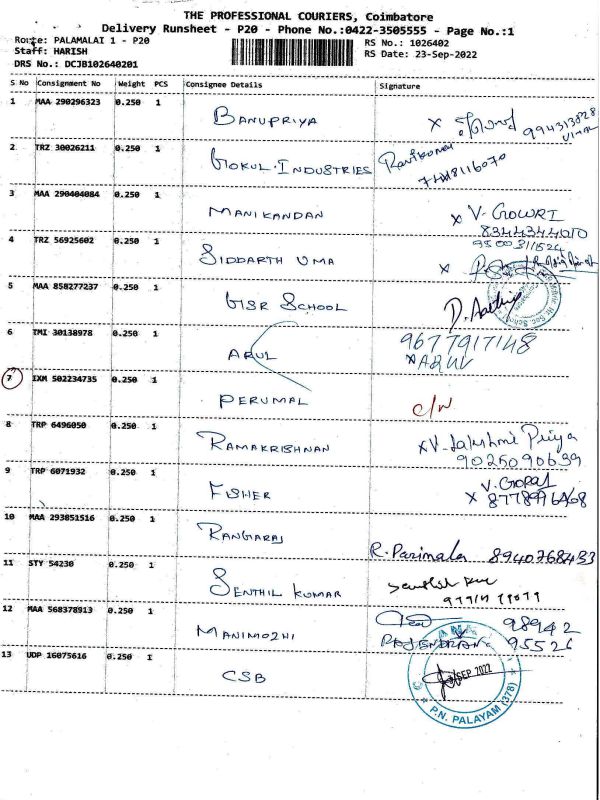 THE PROFESSIONAL COURIERS, Coimbatore
Delivery Runsheet - P20 - Phone No.:0422-3505555 - Page No.:1
Route: PALAMALAI 1 - P20
RS No.: 1026402
Staff: HARISH
RS Date: 23-Sep-2022
DRS No.: DCJB102640201
S No Consignment No Weight PCS Consignee Details Signature
1 MAA 290296323 0.250 1 BANUPRIYA
2 TRZ 30026211 0.250 1 GOKUL.INDUSTRIES Ravikumar
3 MAA 290404084 0.250 1 MANIKANDAN x V. GOWRI
8344344010
4 TRZ 56925602 0.250 1 SIDDARTH UMA 9500311524
5 MAA 858277237 0.250 1 GISR SCHOOL
6 TMI 30138978 0.250 1 ARUL 9677917148
7 IXM 502234735 0.250 1 PERUMAL
8 TRP 6496050 0.250 1 RAMAKRISHNAN x V. Lakshmi Priya
9025090639
9 TRP 6071932 0.250 1 FISHER V. GOPAL
10 MAA 293851516 0.250 1 RANGARAJ R. Parimala 8940768433
11 STY 54230 0.250 1 SENTHIL KUMAR
12 MAA 568378913 0.250 1 MANIMOZHI 98942
RAJENDRAN 95526
13 UDP 16075616 0.250 1 CSB
SEP 2022
P.N. PALAYAM (378)